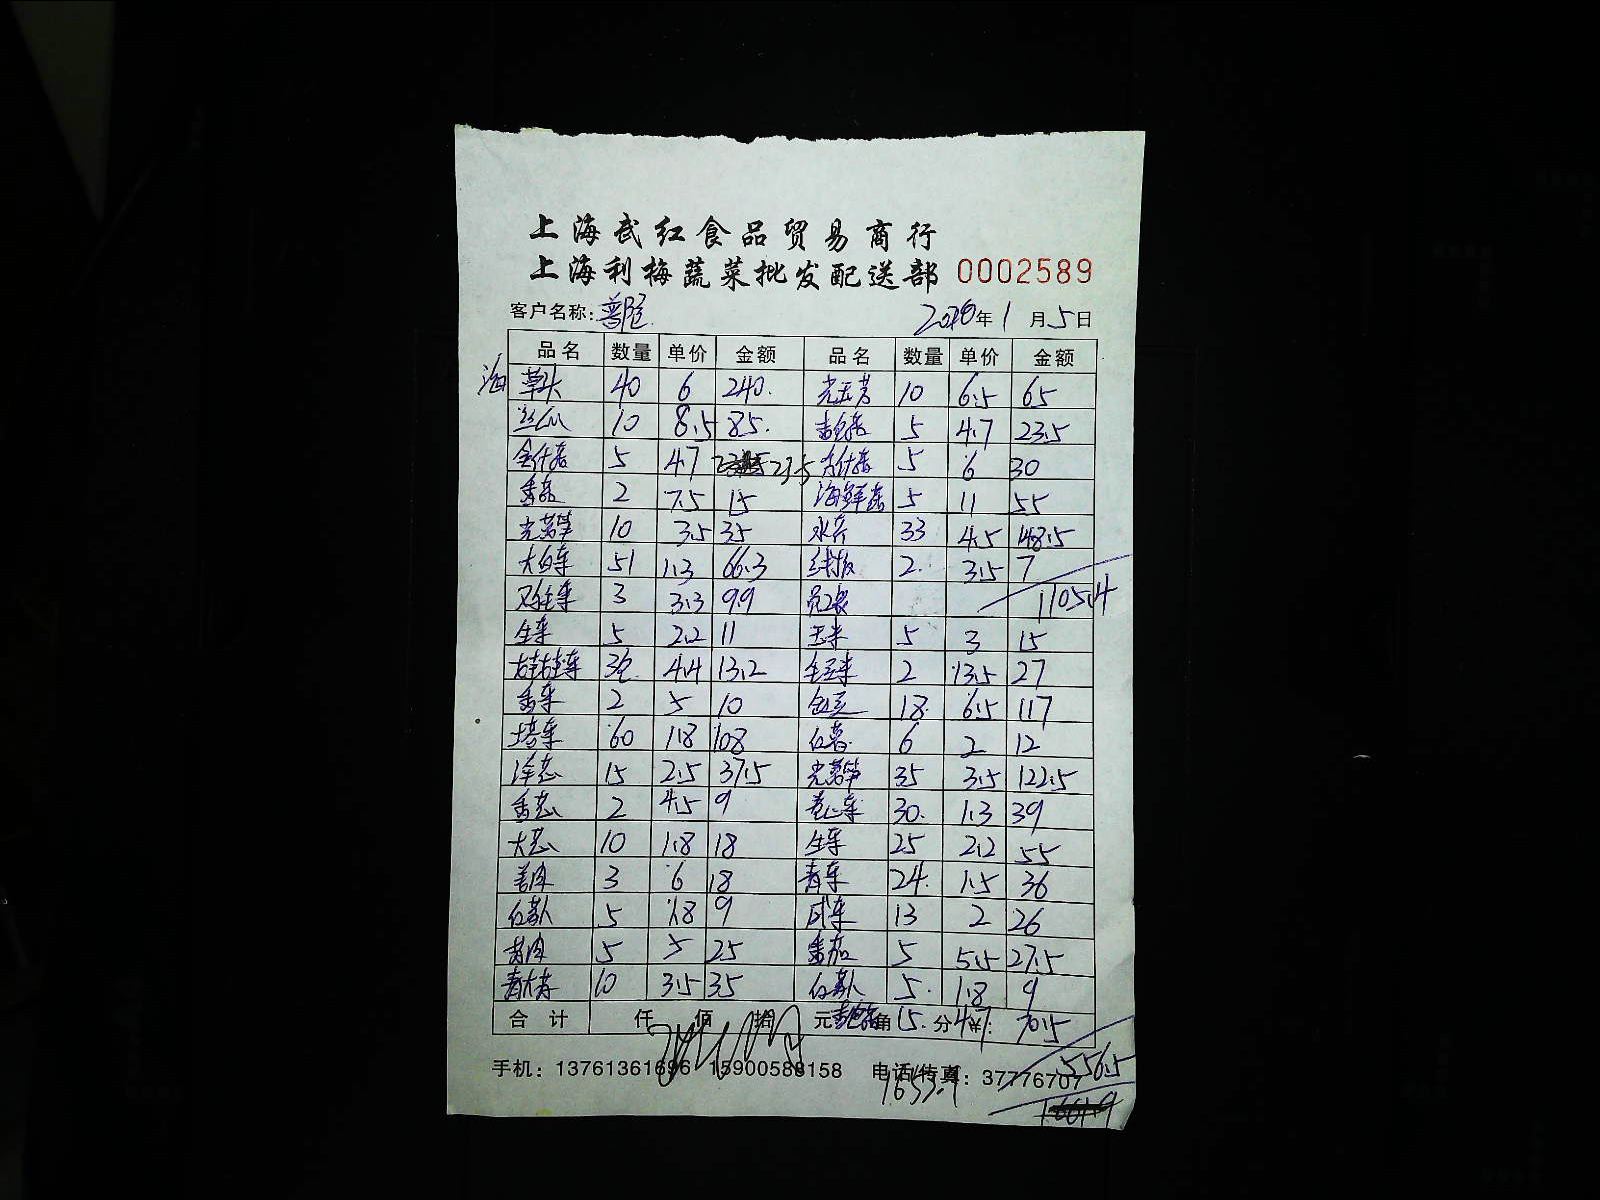 上海武红食品贸易商行
上海利梅蔬菜批发配送部 0002589
客户名称: 2016年1月5日
品名 数量 单价 金额 品名 数量 单价 金额
海 草头 40 6 240. 10 6.5 65
丝瓜 10 8.5 85. 5 4.7 23.5
5 4.7 23.5 5 6 30
香菇 2 7.5 15 海鲜菇 5 11 55
光莴笋 10 3.5 35 水芹 33 4.5 148.5
大白菜 51 1.3 66.3 2. 3.5 7
3 3.3 9.9 1105.4
生菜 5 2.2 11 玉米 5 3 15
4.4 13.2 2 13.5 27
香菜 2 5 10 18. 6.5 117
塔菜 60 1.8 108 红薯 6 2 12
洋葱 15 2.5 37.5 光莴笋 35 3.5 122.5
香葱 2 4.5 9 卷心菜 30. 1.3 39
大葱 10 1.8 18 生菜 25 2.2 55
姜肉 3 6 18 青菜 24. 1.5 36
5 1.8 9 13 2 26
5 5 25 番茄 5 5.5 27.5
10 3.5 35 5. 1.8 9
合计 仟 佰 拾 元 角 15. 分 4.7 ¥: 70.5
手机: 13761361696 15900588158 电话/传真: 37776707 556.5